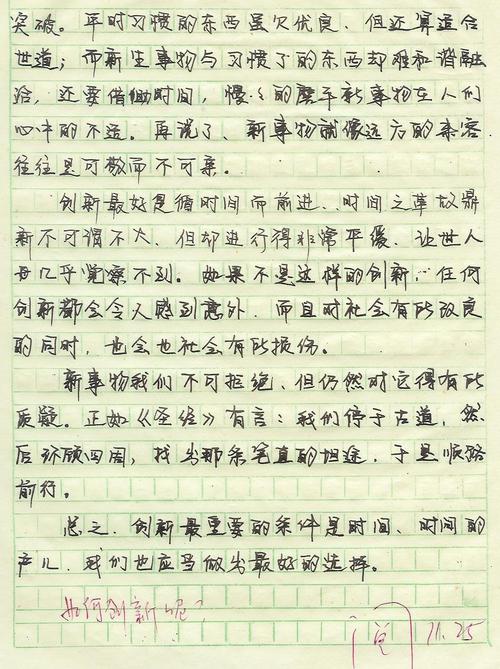 突破。平时习惯的东西虽欠优良，但还算适合
世道；而新生事物与习惯了的东西却难和谐融
洽，还要借助时间，慢々的磨平新事物在人们
心中的不适。再说了，新事物就像远方的来客
往往是可敬而不可亲。
创新最好是循时间而前进、时间之革故鼎
新不可谓不大，但却进行得非常平缓，让世人
毋几乎觉察不到。如果不是这样的创新，任何
创新都会令人感到意外，而且对社会有所改良
的同时，也会也社会有所损伤。
新事物我们不可拒绝、但仍然对它得有所
质疑。正如《圣经》有言：我们停于古道，然
后环顾四周，找出那条笔直的坦途，于是顺路
前行。
总之，创新最重要的条件是时间、时间的
产儿，我们也应当做出最好的选择。
如何创新呢？
阅 11.25